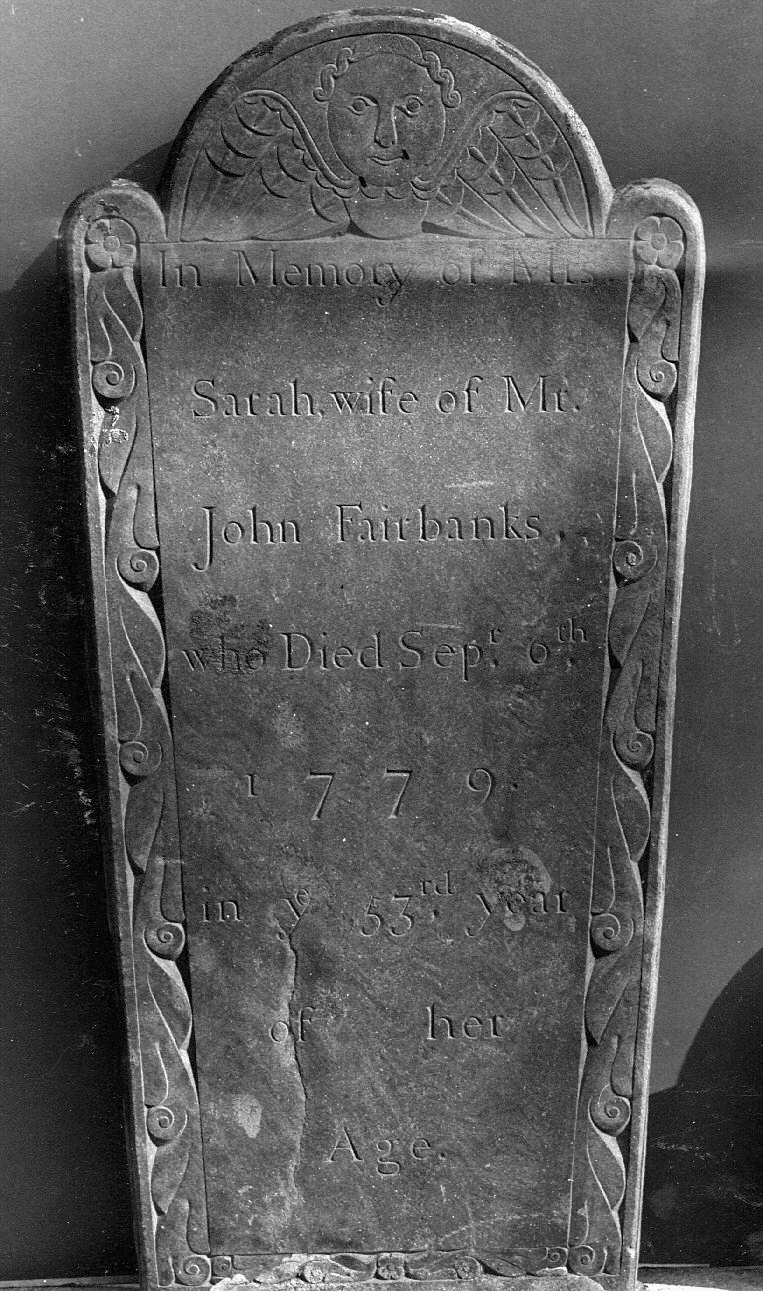 In Memory of Mrs.
Sarah, wife of Mr.
John Fairbanks..
who Died Sepr. 6th.
1779.
in ye 53rd. year
of her
Age.